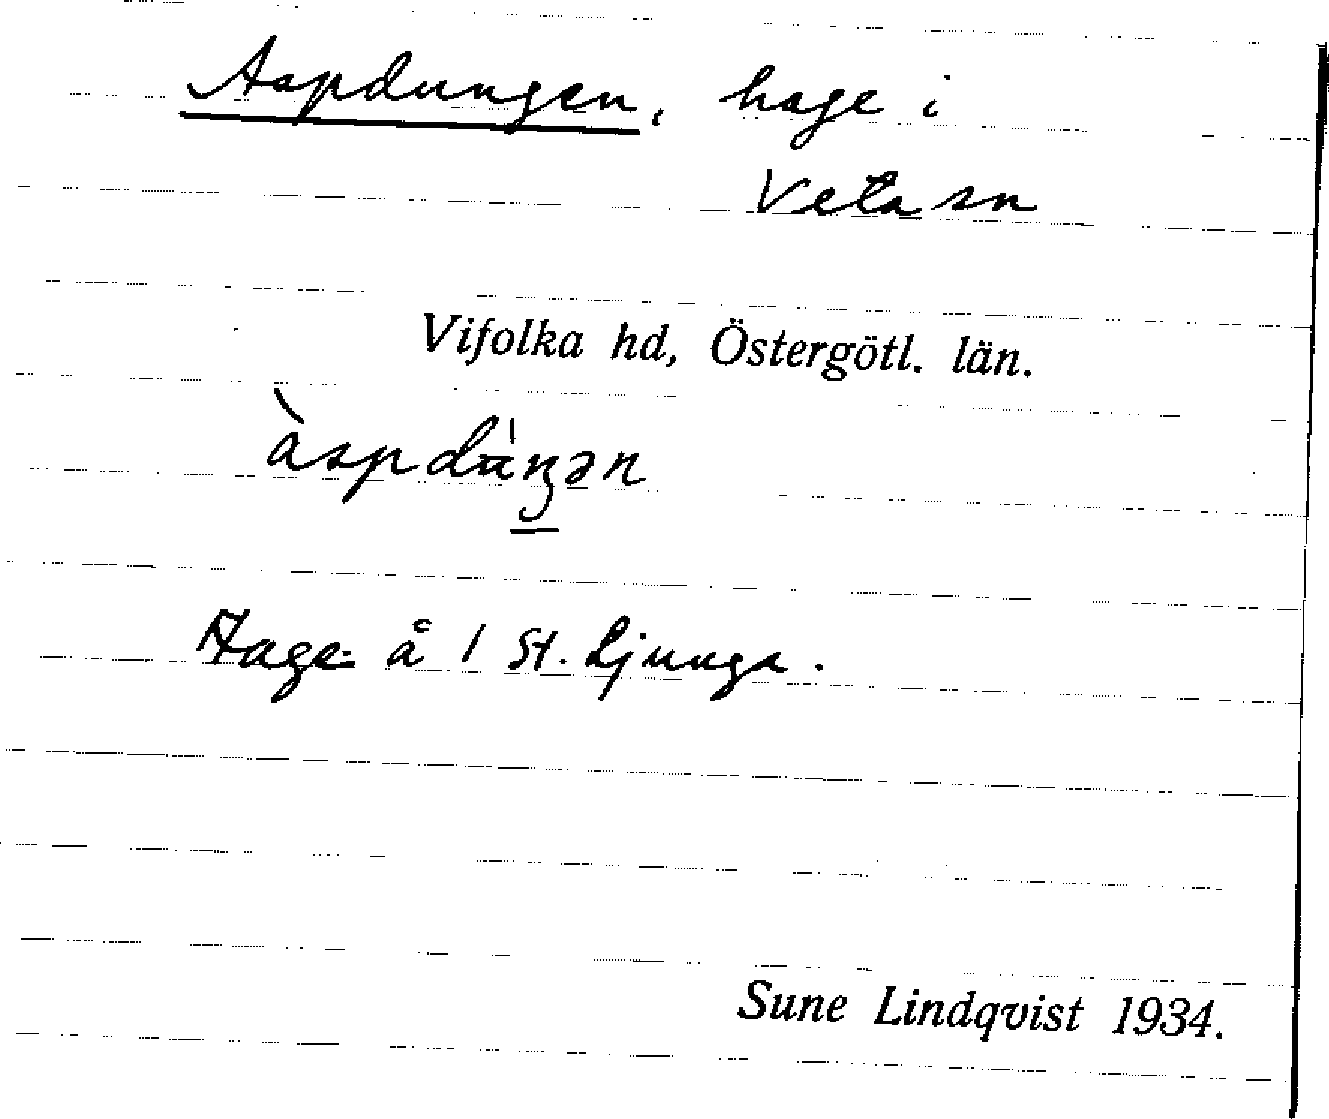 Aspdungen, hage i
Veta sn
Vifolka hd, Östergötl. län.
Hage å 1 St. Ljunga.
Sune Lindqvist 1934.